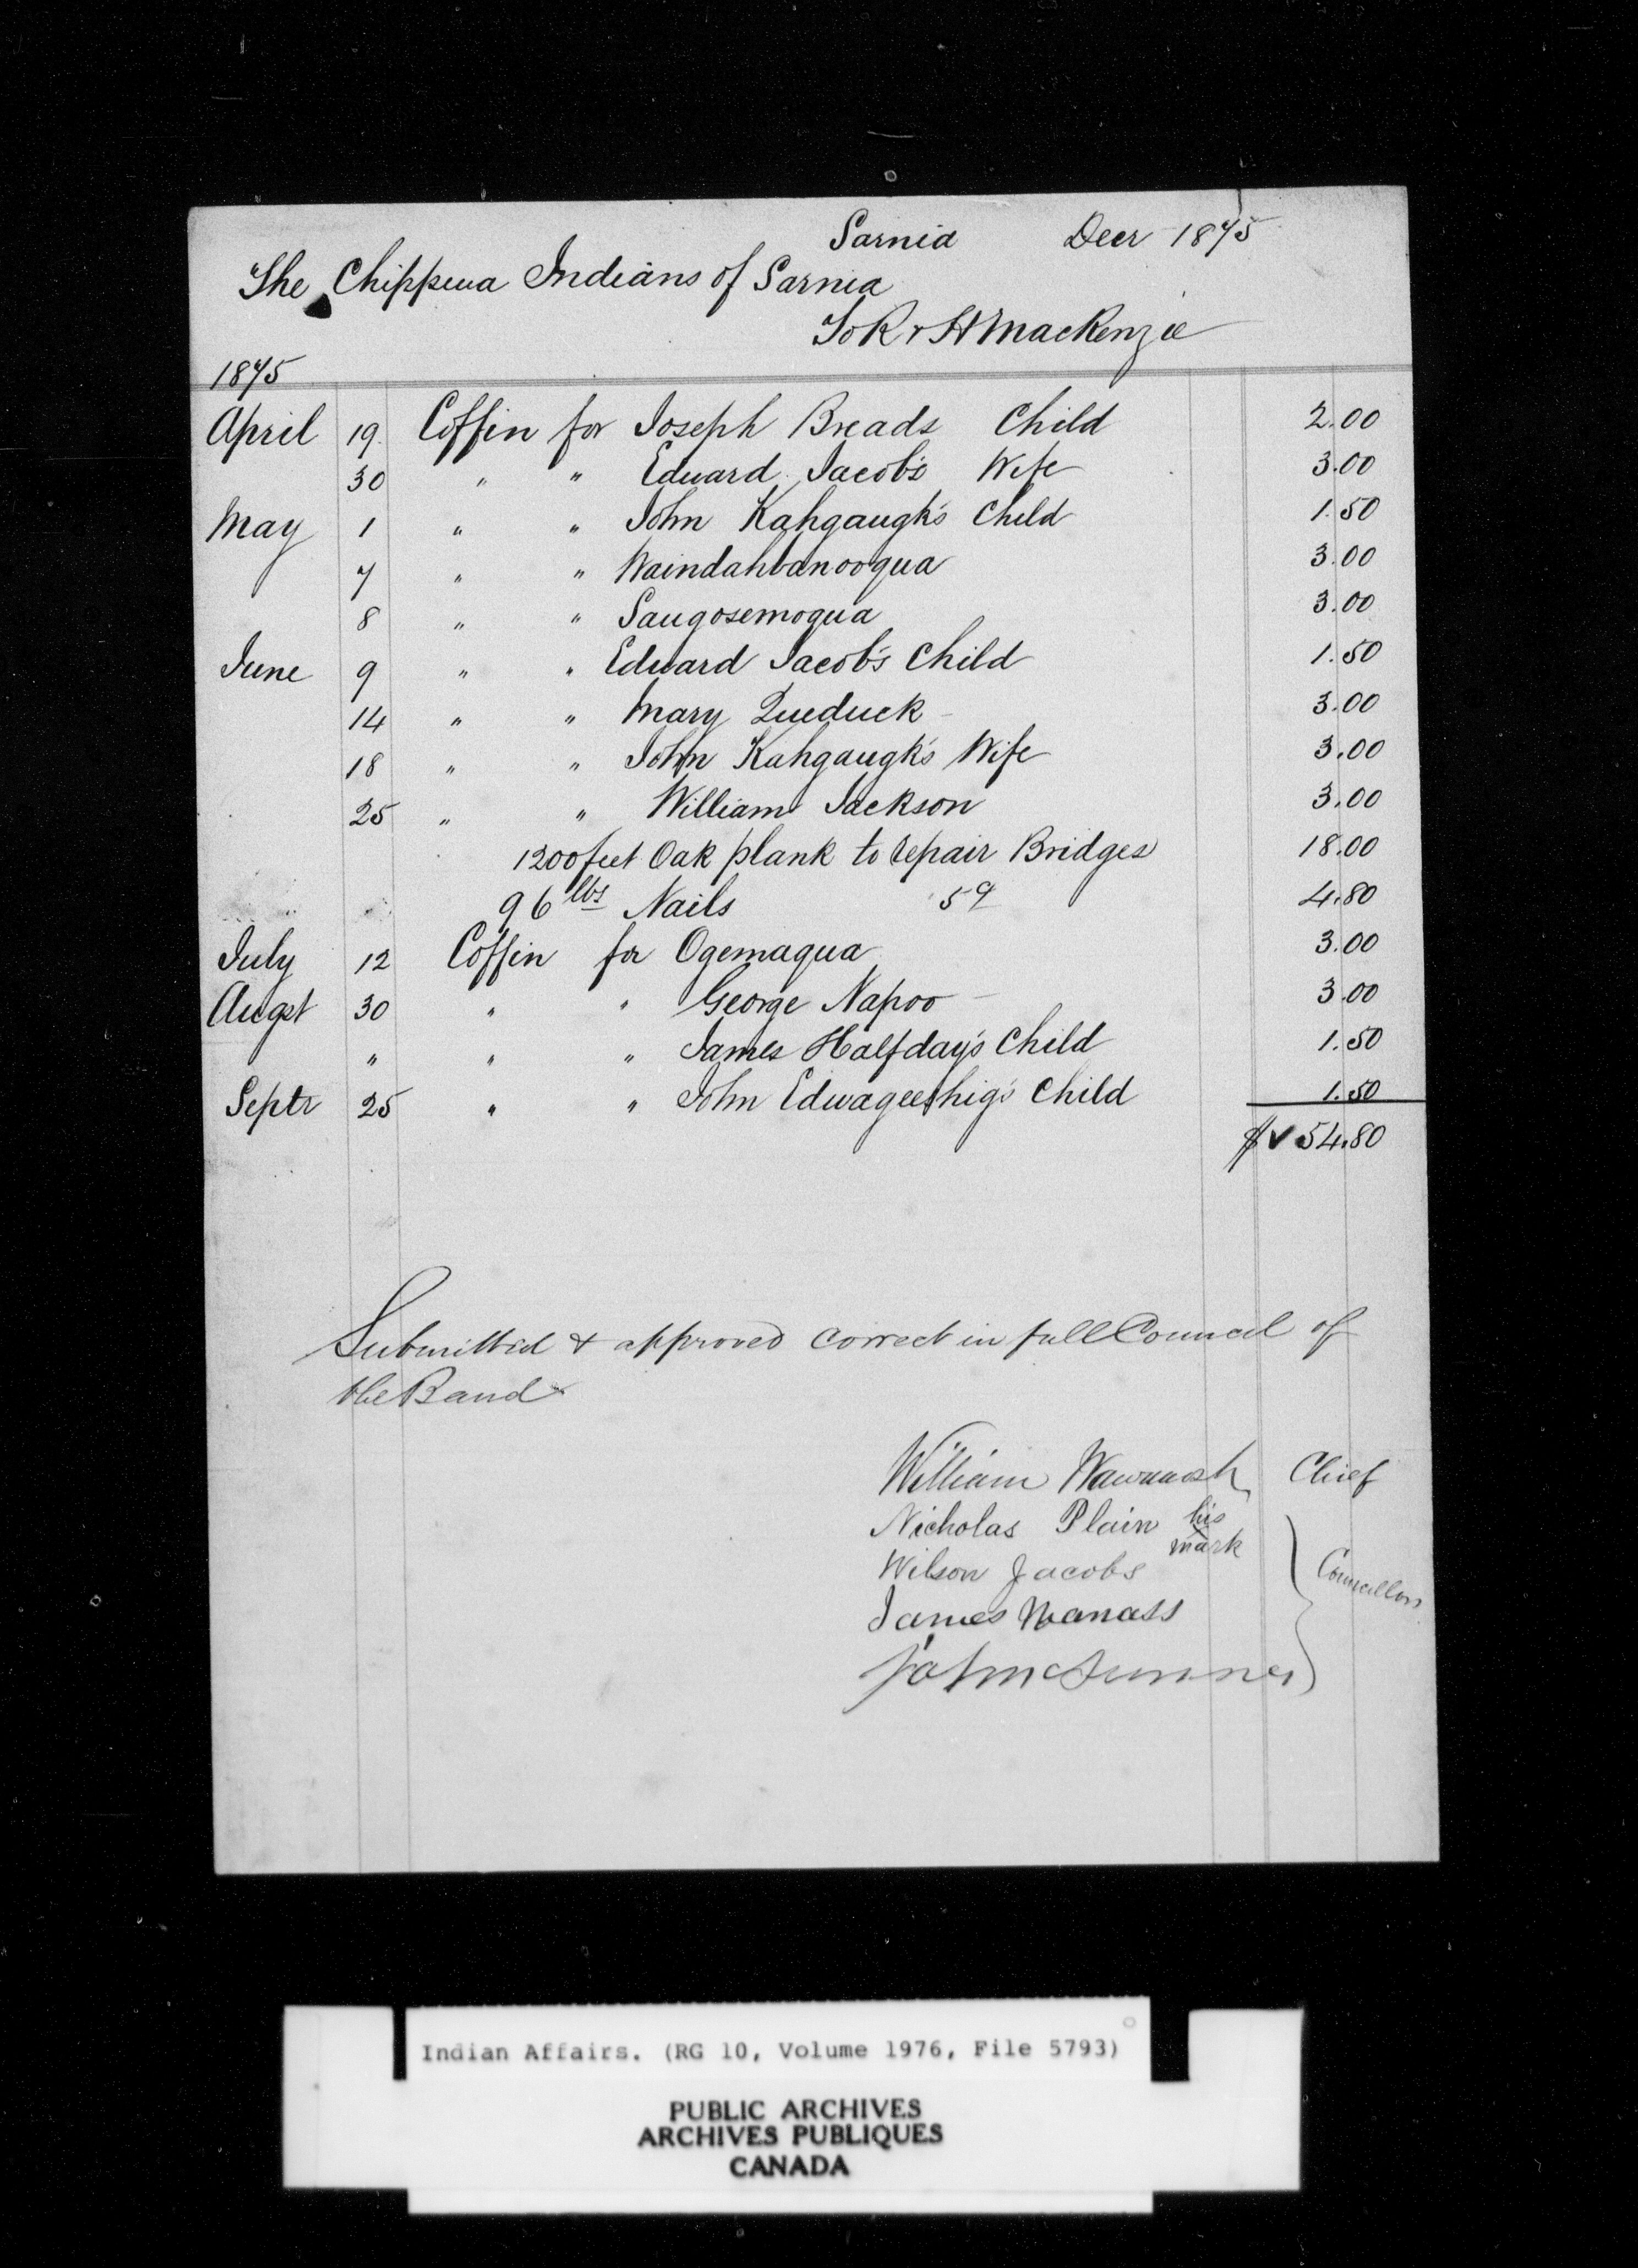 Sarnia Decr 1875
The Chippewa Indians of Sarnia
To R & H Mackenzie
1875
April 19 Coffin for Joseph Breads Child 2.00
30 " " Edward Jacob's Wife 3.00
May 1 " " John Kahgaugk's Child 1.50
7 " " Waindahbanooqua 3.00
8 " " Saugosemoqua 3.00
June 9 " " Edward Jacob's Child 1.50
14 " " Mary Queduck 3.00
18 " " John Kahgaugk's Wife 3.00
25 " " William Jackson 3.00
1200 feet Oak plank to repair Bridges 18.00
96 lbs Nails 5 4.80
July 12 Coffin for Ogemaqua 3.00
Augst 30 " " George Napoo 3.00
" " " James Halfday's Child 1.50
Septr 25 " " John Edwageeshig's Child 1.50
$ ✓ 54.80
Submitted & approved correct in full Council of
the Band
William Wawanosh Chief
Nicholas Plain his x mark
Wilson Jacobs Councillors
James Manass
John Sumner
Indian Affairs. (RG 10, Volume 1976, File 5793)
PUBLIC ARCHIVES
ARCHIVES PUBLIQUES
CANADA